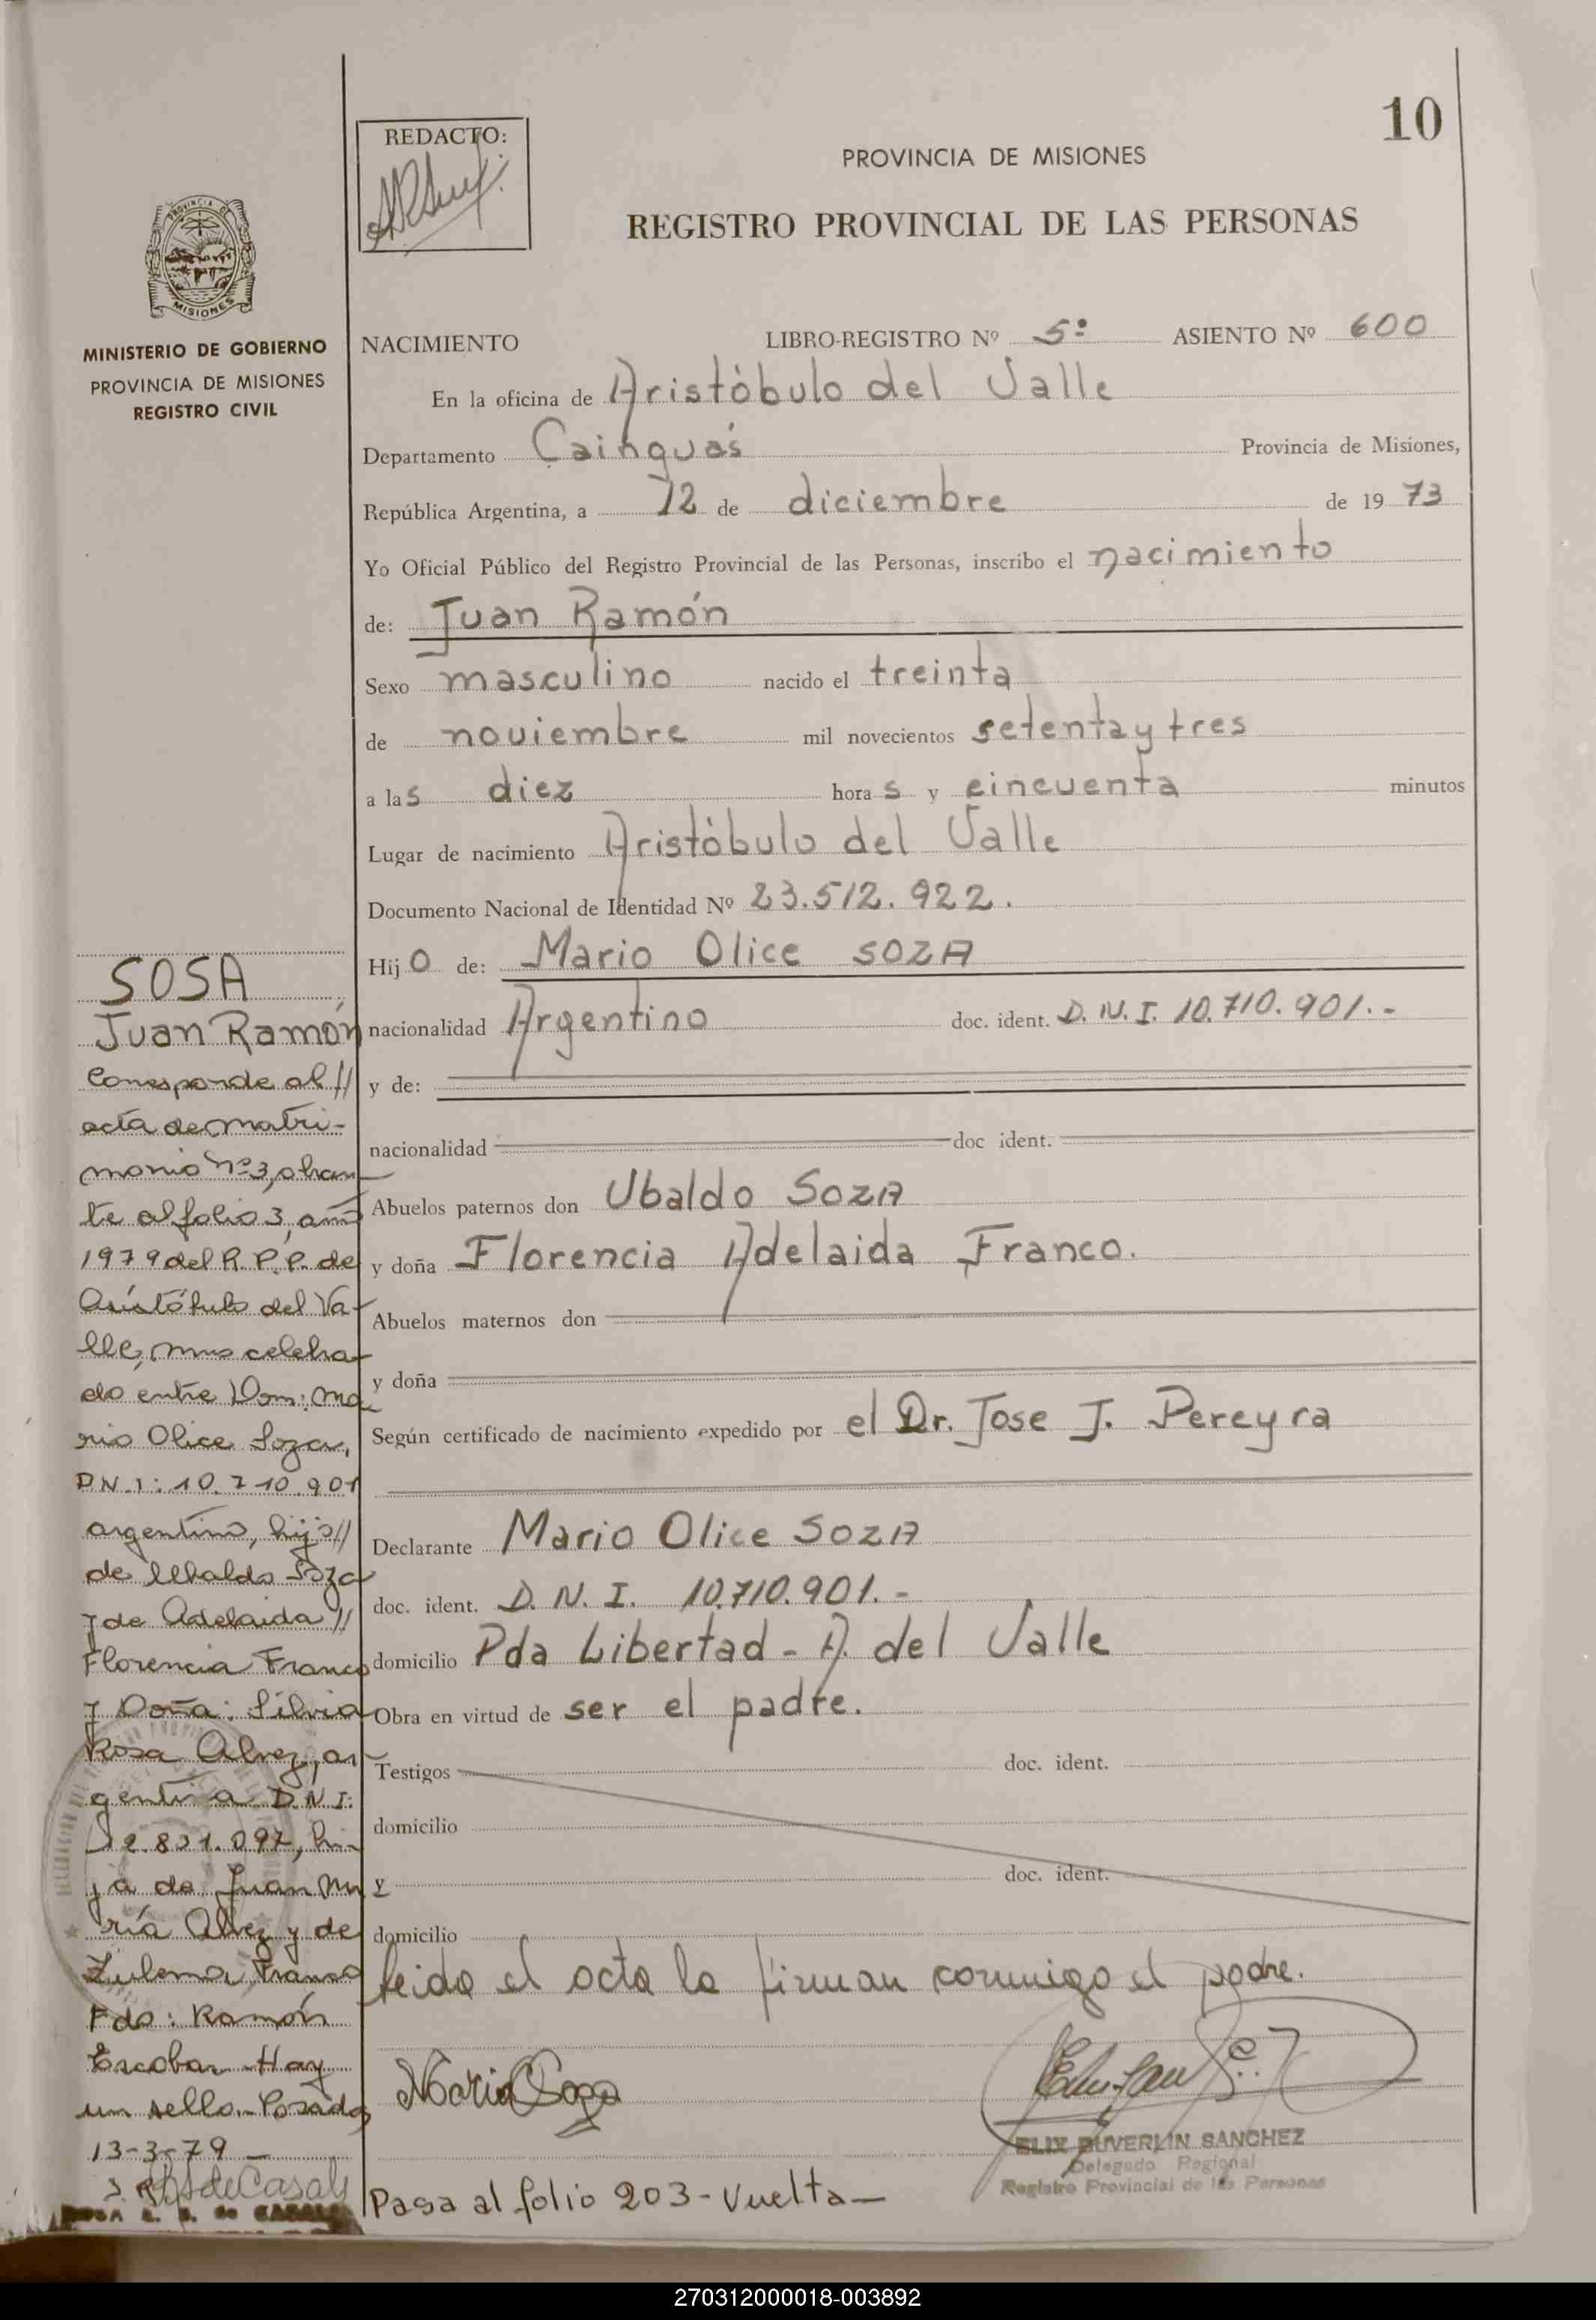 10
REDACTO:
PROVINCIA DE MISIONES
REGISTRO PROVINCIAL DE LAS PERSONAS
PROVINCIA DE
MISIONES
MINISTERIO DE GOBIERNO
PROVINCIA DE MISIONES
REGISTRO CIVIL
NACIMIENTO LIBRO-REGISTRO Nº 5º ASIENTO Nº 600
En la oficina de Aristóbulo del Valle
Departamento Cainguás Provincia de Misiones,
República Argentina, a 12 de diciembre de 19 73
Yo Oficial Público del Registro Provincial de las Personas, inscribo el nacimiento
de: Juan Ramón
Sexo masculino nacido el treinta
de noviembre mil novecientos setenta y tres
a las diez horas y cincuenta minutos
Lugar de nacimiento Aristóbulo del Valle
Documento Nacional de Identidad Nº 23.512.922.
Hijo de: Mario Olice SOZA
nacionalidad Argentino doc. ident. D.N.I. 10.710.901.-
y de:
nacionalidad doc ident.
Abuelos paternos don Ubaldo SOZA
y doña Florencia Adelaida Franco.
Abuelos maternos don
y doña
Según certificado de nacimiento expedido por el Dr. Jose J. Pereyra
Declarante Mario Olice SOZA
doc. ident. D.N.I. 10.710.901.-
domicilio Pda Libertad - A. del Valle
Obra en virtud de ser el padre.
Testigos doc. ident.
domicilio
y doc. ident.
domicilio
leida el acta la firman conmigo el padre.
Mario O Soza
ELIX DUVERLIN SANCHEZ
Delegado Regional
Registro Provincial de las Personas
Pasa al folio 203 - Vuelta -
SOSA
Juan Ramón
Corresponde al //
acta de matri-
monio nº 3, obran
te al folio 3, año
1979 del R.P.P. de
Aristóbulo del Va-
lle, mus celebra-
do entre Don: Ma
rio Olice Soza,
DN.I: 10.710.901
argentino, hijo //
de Ubaldo Soza
y de Adelaida //
Florencia Franco
y Doña: Silvia
Rosa Alvez, ar-
gentina D.N.I:
12.831.097, hi-
ja de Juan Ma
ría Alvez y de
Zulema Franco
Fdo: Ramón
Escobar - Hay
un sello.- Posadas
13-3-79 -
de Casals
270312000018-003892